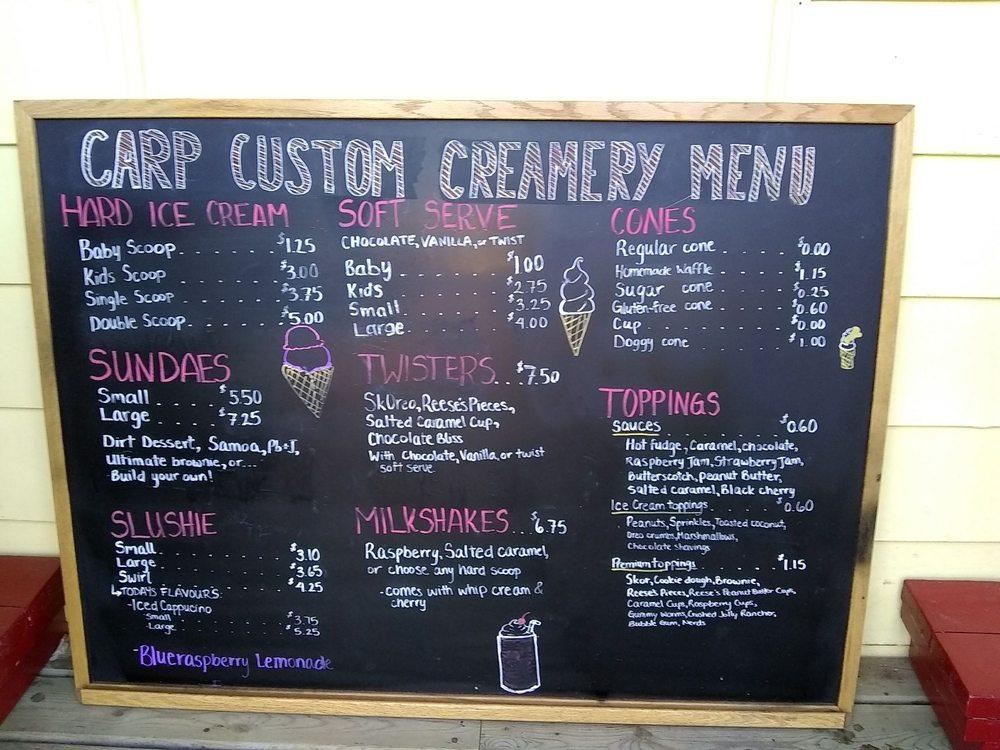 CARP CUSTOM CREAMERY MENU
HARD ICE CREAM
Baby Scoop . . . . . . . . $1.25
Kids Scoop . . . . . . . . $3.00
Single Scoop . . . . . . . $3.75
Double Scoop . . . . . . . $5.00
SOFT SERVE
CHOCOLATE, VANILLA, or TWIST
Baby . . . . . . . . $1.00
Kids . . . . . . . . $2.75
Small . . . . . . . $3.25
Large . . . . . . . $4.00
CONES
Regular cone . . . . . . $0.00
Homemade Waffle . . . . . $1.15
Sugar cone . . . . . . $0.25
Gluten-free cone . . . . . $0.60
Cup . . . . . . . . $0.00
Doggy cone . . . . . . $1.00
SUNDAES
Small . . . . . $5.50
Large . . . . . $7.25
Dirt Dessert, Samoa, Pb+J,
Ultimate brownie, or...
Build your own!
TWISTERS...$7.50
SkOreo, Reese's Pieces,
Salted Caramel Cup,
Chocolate Bliss
With Chocolate, Vanilla, or twist
soft serve
TOPPINGS
Sauces . . . . . . . . $0.60
Hot fudge, Caramel, chocolate,
Raspberry Jam, Strawberry Jam,
Butterscotch, peanut Butter,
Salted caramel, Black cherry
Ice Cream toppings . . . . . $0.60
Peanuts, Sprinkles, Toasted coconut,
Oreo crumbs, Marshmallows,
Chocolate shavings
Premium toppings . . . . . $1.15
Skor, Cookie dough, Brownie,
Reese's Pieces, Reese's Peanut Butter Cups,
Caramel Cups, Raspberry Cups,
Gummy Worms, Crushed Jolly Rancher,
Bubble Gum, Nerds
SLUSHIE
Small . . . . . . . . $3.10
Large . . . . . . . . $3.65
Swirl . . . . . . . . $4.25
↳TODAYS FLAVOURS:
-Iced Cappucino
Small . . . . . . . $3.75
Large . . . . . . . $5.25
-Blueraspberry Lemonade
MILKSHAKES...$6.75
Raspberry, Salted caramel,
or choose any hard scoop
-comes with whip cream &
cherry